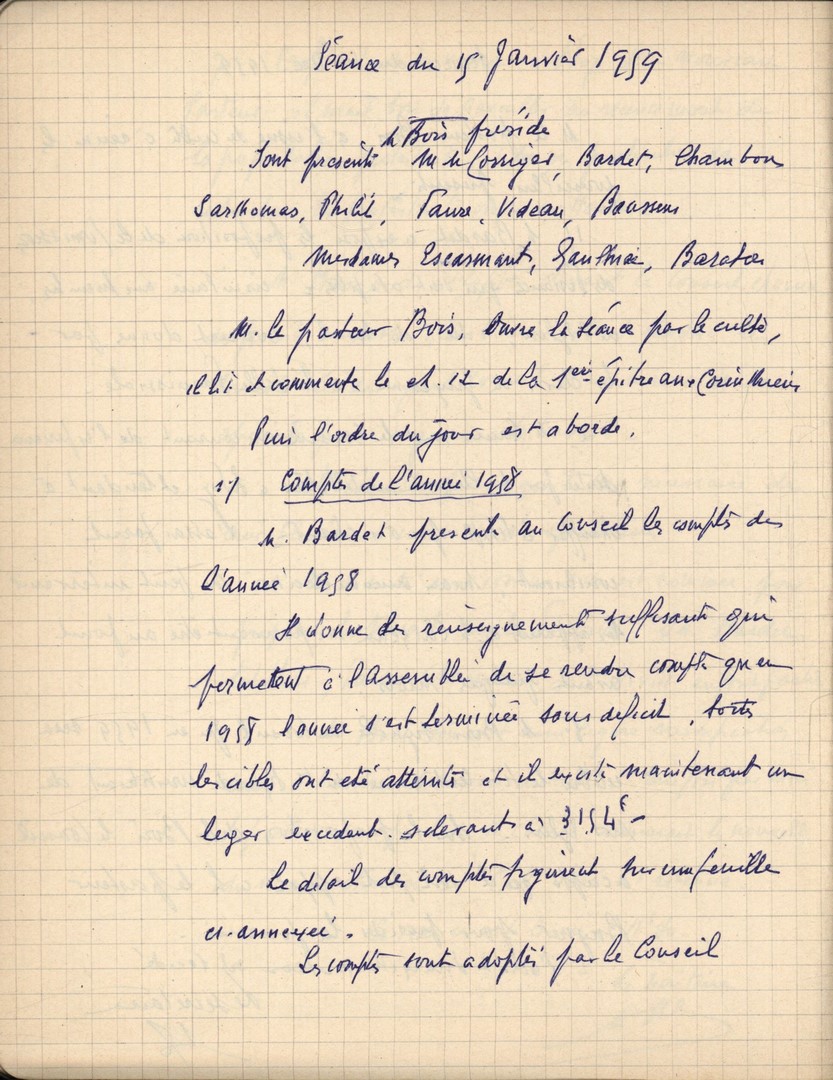 Séance du 15 Janvier 1959
M Bois préside
Sont présents M M Bardet, Chambon
Sarthomas, Philit, Faure, Videau, Boussens
Mesdames Escarmant, Gauthier, Baratou
M. le pasteur Bois, ouvre la séance par le culte,
il lit et commente le ch. 12 de la 1ère épitre aux Corinthiens
Puis l'ordre du jour est abordé.
1/ Comptes de l'année 1958
M. Bardet présente au Conseil les comptes de
l'année 1958
Il donne des renseignements suffisants qui
permettent à l'Assemblée de se rendre compte qu'en
1958 l'année s'est terminée sans deficit, toutes
les cibles ont été atteintes et il existe maintenant un
leger excedent. s'elevant à 3154F -
Le détail des comptes figurent sur une feuille
ci-annexée.
Les comptes sont adoptés par le Conseil